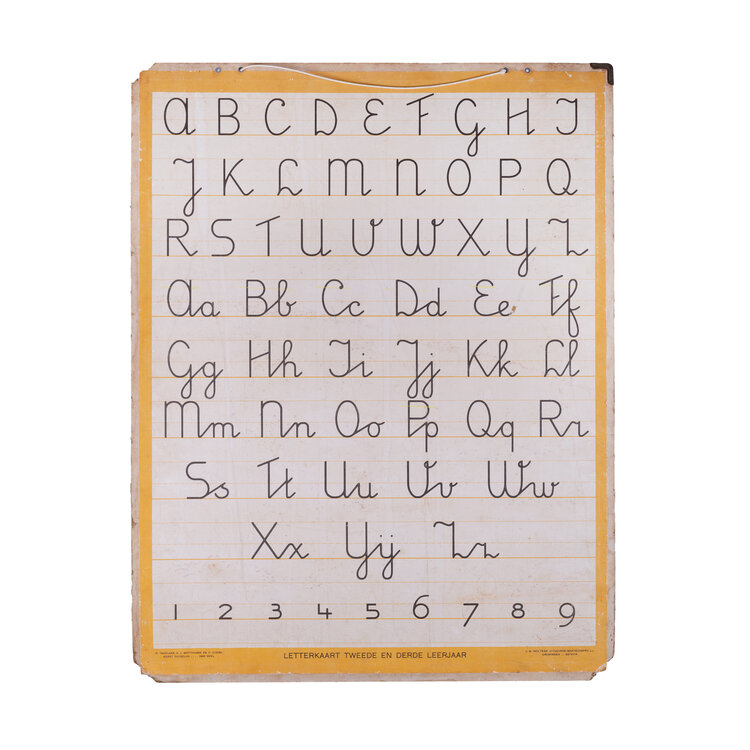 A B C D E F G H I
J K L M N O P Q
R S T U V W X Y Z
Aa Bb Cc Dd Ee Ff
Gg Hh Ii Jj Kk Ll
Mm Nn Oo Pp Qq Rr
Ss Tt Uu Vv Ww
Xx Yÿ Zz
1 2 3 4 5 6 7 8 9
LETTERKAART TWEEDE EN DERDE LEERJAAR